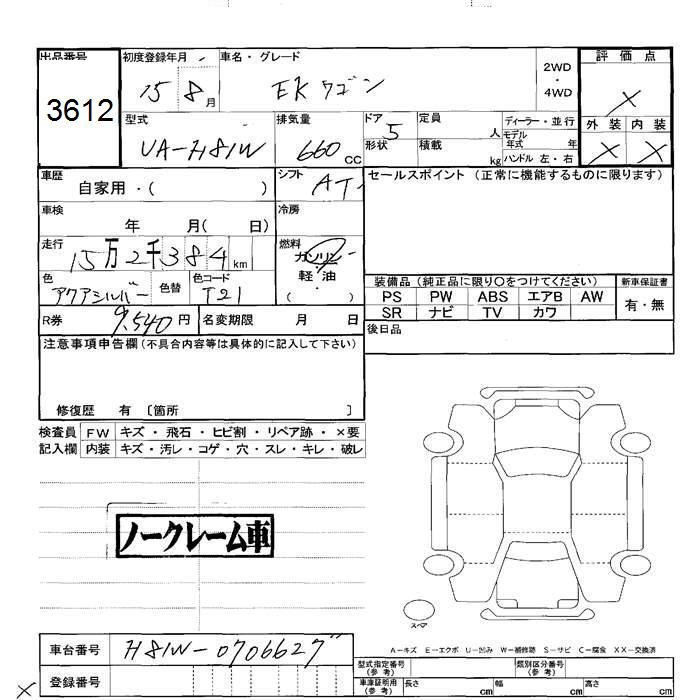 出品番号
3612
初度登録年月
15 8 月
車名・グレード
EKワゴン
2WD
・
4WD
評価点
X
外装 内装
X X
型式
UA-H81W
排気量
660 CC
ドア 5
形状
定員 人
積載 kg
ディーラー・並行
モデル
年式 年
ハンドル 左・右
車歴
自家用・( )
シフト AT
セールスポイント (正常に機能するものに限ります)
車検
年 月( 日)
冷房
走行
15万2千384km
燃料
ガソリン
軽・油
( )
色
アクアシルバー
色替
色コード
T21
装備品 (純正品に限り〇をつけてください)
PS PW ABS エアB AW
SR ナビ TV カワ
新車保証書
有・無
R券 9,540円
名変期限 月 日
後日品
注意事項申告欄 (不具合内容等は具体的に記入して下さい)
修復歴 有 〔箇所 〕
検査員 FW キズ・飛石・ヒビ割・リペア跡・×要
記入欄 内装 キズ・汚レ・コゲ・穴・スレ・キレ・破レ
ノークレーム車
スペア
A-キズ E-エクボ U-凹み W-補修跡 S-サビ C-腐食 XX-交換済
車台番号 H81W-0706627
登録番号
型式指定番号
(参考)
類別区分番号
(参考)
車庫証明用
(参考)
長さ cm 幅 cm 高さ cm
X